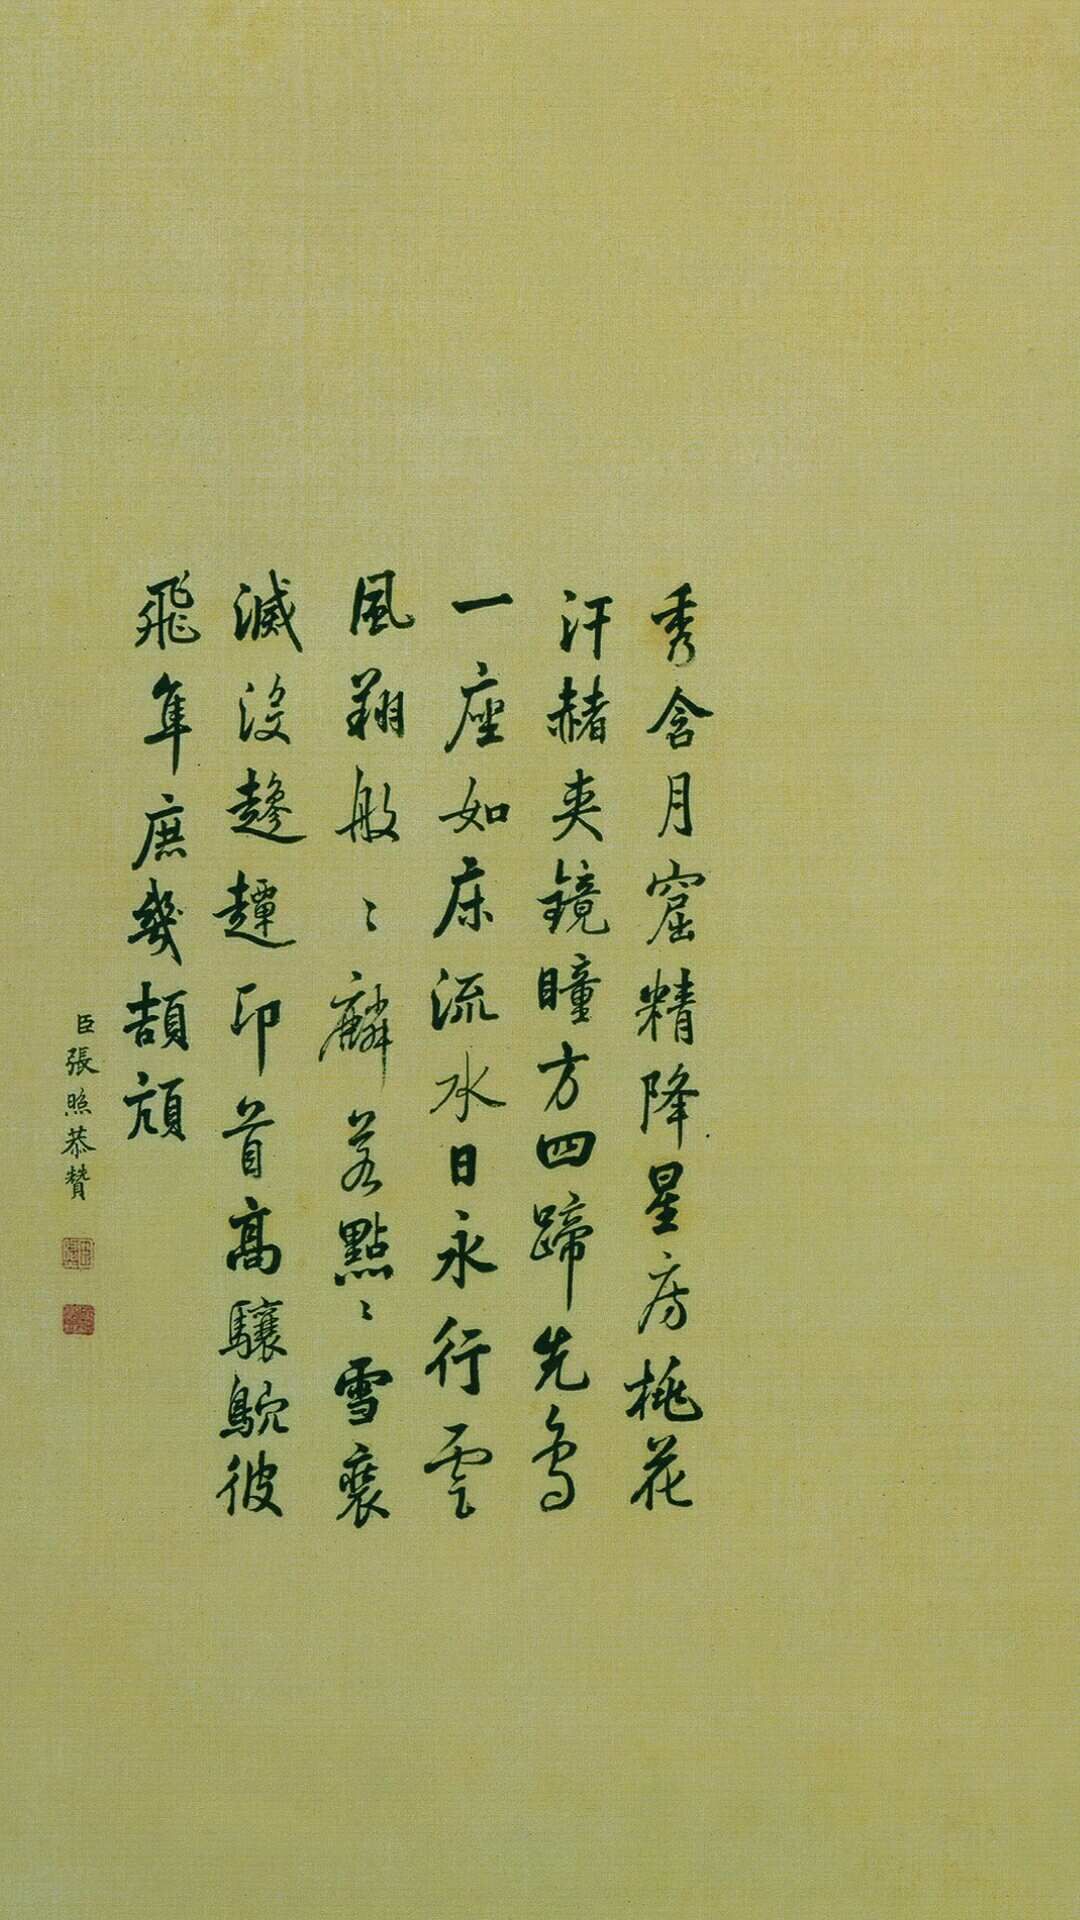 秀含月窟精降星房桃花
汗赭夹鏡瞳方四蹄先為
一座如床流水日永行雲
風翔般〻麟若點〻雪裹
滅没趁趯印首高驤馸彼
飛隼庶幾頡頏
臣張照恭贊